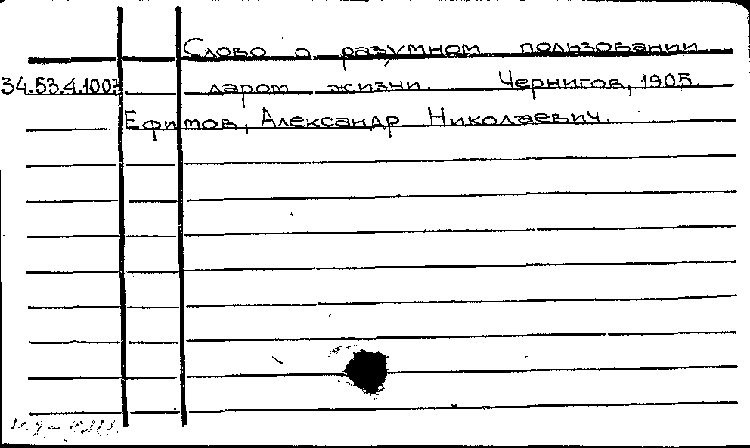 Слово о разумном пользовании
34.53.4.1007. даром жизни. Чернигов, 1905.
Ефимов, Александр Николаевич.